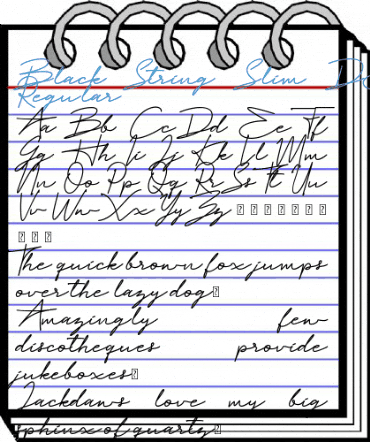 Black String Slim D
Regular
Aa Bb Cc Dd Ee Ff
Gg Hh Ii Jj Kk Ll Mm
Nn Oo Pp Qq Rr Ss Tt Uu
Vv Ww Xx Yy Zz
The quick brown fox jumps
over the lazy dog
Amazingly few
discotheques provide
jukeboxes
Jackdaws love my big
sphinx of quartz